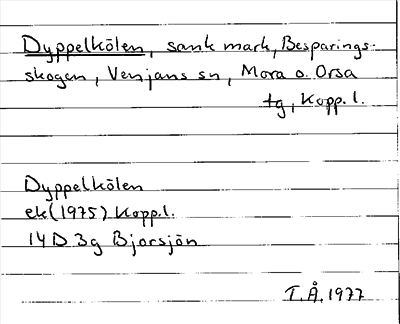 Dyppelkölen, sank mark, Besparings-
skogen, Venjans sn, Mora o. Orsa
tg, Kopp. l.
Dyppelkölen
ek (1975) Kopp.l.
14 D 3g Bjorsjön
T.Å. 1977